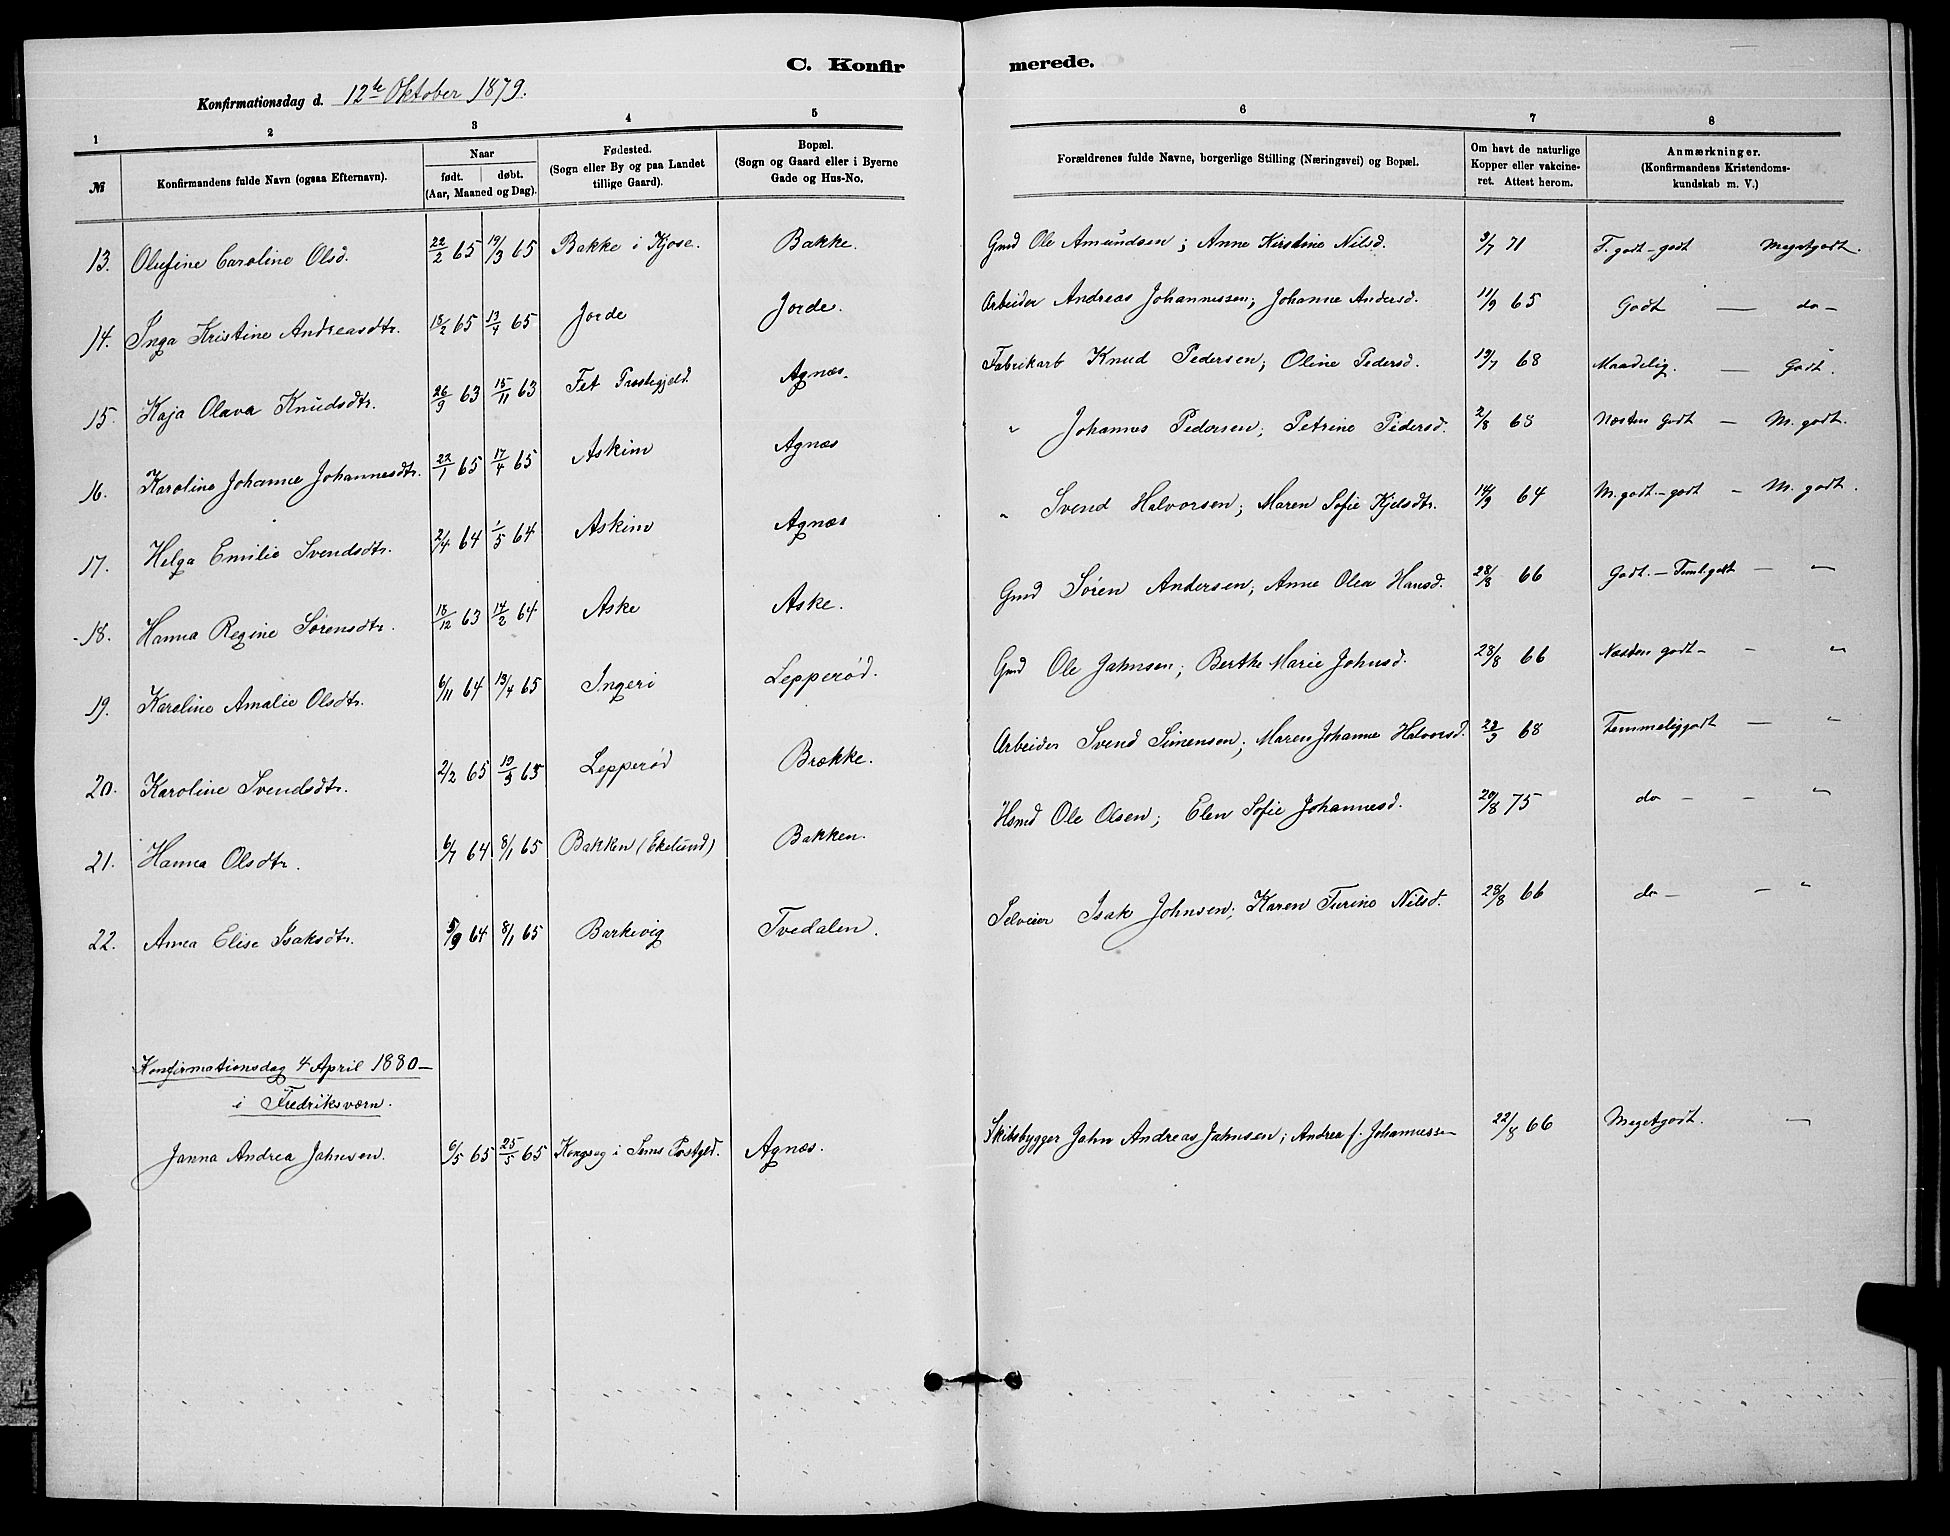 C. Konfirmerede.
Konfirmationsdag d. 12te Oktober 1879.
1 2 3 4 5 6 7 8
№ | Konfirmandens fulde Navn (ogsaa Efternavn). | Naar født. døbt. (Aar, Maaned og Dag). | Fødested. (Sogn eller By og paa Landet tillige Gaard). | Bopæl. (Sogn og Gaard eller i Byerne Gade og Hus-No. | Forældrenes fulde Navne, borgerlige Stilling (Næringsvei) og Bopæl. | Om havt de naturlige Kopper eller vakcineret. Attest herom. | Anmærkninger. (Konfirmandens Kristendomskundskab m. V.)
13. Olufine Caroline Olsd. 22/2 65 19/3 65 Bakke i Kjose. Bakke. Gmd Ole Amundsen; Anne Kirstine Nilsd. 3/7 71 T. godt - godt Megetgodt.
14. Inga Kristine Andreasdtr. 18/2 65 13/4 65 Jorde Jorde. Arbeider Andreas Johannessen; Johanne Andersd. 11/9 65 Godt — do -
15. Kaja Olava Knudsdtr. 26/9 63 15/11 63 Fet Præstegjeld. Agnæs. Fabrikarb Knud Pedersen; Oline Pedersd. 19/7 68 Maadelig. — Godt.
16. Karoline Johanne Johannesdtr. 22/1 65 17/4 65 Askim Agnæs " Johannes Pedersen; Petrine Pedersd. 2/8 68 Næsten godt — M. godt.
17. Helga Emilie Svendsdtr. 2/4 64 1/5 64 Askim Agnæs " Svend Halvorsen; Maren Sofie Kjelsdtr. 14/9 64 M. godt. - godt - M. godt.
18. Hanna Regine Sørensdtr. 18/12 63 14/2 64 Aske Aske. Gmd Søren Andersen; Anne Olea Hansd. 28/8 66 Godt. - Teml. godt — "
19. Karoline Amalie Olsdtr. 6/11 64 13/4 65 Ingeri Lepperød. Gmd Ole Jahnsen; Berthe Marie Johnsd. 28/8 66 Næsten godt - - "
20. Karoline Svendsdtr. 2/2 65 19/3 65 Lepperød Brække. Arbeider Svend Simensen; Maren Johanne Halvorsd. 22/9 68 Temmeliggodt — "
21. Hanna Olsdtr. 6/7 64 8/1 65 Bakken (Ekelund) Bakken. Hsmd Ole Olsen; Elen Sofie Johannesd. 20/8 75 do - - "
22. Anna Elise Isaksdtr. 5/9 64 8/1 65 Barkevig Tvedalen. Selveier Isak Johnsen; Karen Turine Nilsd. 28/8 66 do - - "
Konfirmationsdag 4 April 1880 -
i Fredriksværn.
Janna Andrea Jahnsen. 6/5 65 25/5 65 i Sems Agnæs. Skibsbygger Jahn Andreas Jahnsen; Andrea f. Johannessen 22/8 66 Megetgodt. —